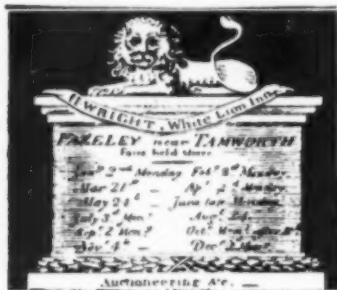 WRIGHT, White Lion Inn
FAZELEY near TAMWORTH
Fairs held there
Jany 2nd Monday Feby 2d Monday
Mar 21st — Apl 2d Monday
May 21st — June last Monday
July 3d Mon Augt 24
Sepr 2 Mon Octr
Novr 4th — Decr 2 Mon
Auctioneering &c.